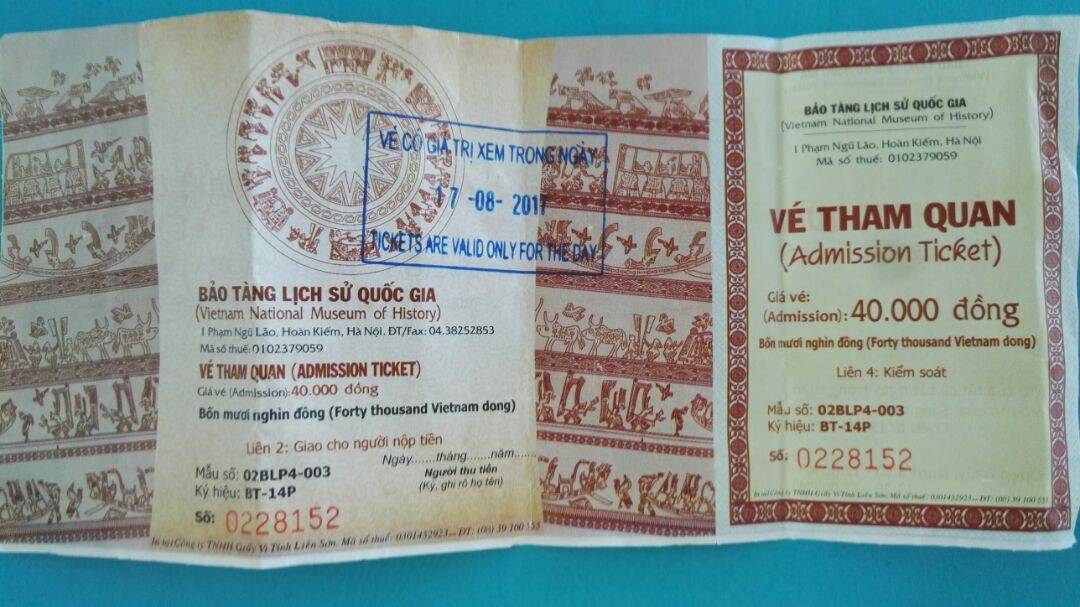 VÉ CÓ GIÁ TRỊ XEM TRONG NGÀY
17 -08- 2017
TICKETS ARE VALID ONLY FOR THE DAY
BẢO TÀNG LỊCH SỬ QUỐC GIA
(Vietnam National Museum of History)
1 Phạm Ngũ Lão, Hoàn Kiếm, Hà Nội. ĐT/Fax: 04.38252853
Mã số thuế: 0102379059
VÉ THAM QUAN (ADMISSION TICKET)
Giá vé (Admission): 40.000 đồng
Bốn mươi nghìn đồng (Forty thousand Vietnam dong)
Liên 2: Giao cho người nộp tiền
Ngày......tháng......năm......
Mẫu số: 02BLP4-003
Người thu tiền
Ký hiệu: BT-14P
(Ký, ghi rõ họ tên)
Số: 0228152
In tại Công ty TNHH Giấy Vi Tính Liên Sơn. Mã số thuế: 0301452923 - ĐT: (08) 39 100 555
BẢO TÀNG LỊCH SỬ QUỐC GIA
(Vietnam National Museum of History)
1 Phạm Ngũ Lão, Hoàn Kiếm, Hà Nội
Mã số thuế: 0102379059
VÉ THAM QUAN
(Admission Ticket)
Giá vé:
(Admission): 40.000 đồng
Bốn mươi nghìn đồng (Forty thousand Vietnam dong)
Liên 4: Kiểm soát
Mẫu số: 02BLP4-003
Ký hiệu: BT-14P
Số: 0228152
In tại Công ty TNHH Giấy Vi Tính Liên Sơn. Mã số thuế: 0301452923 - ĐT: (08) 39 100 555